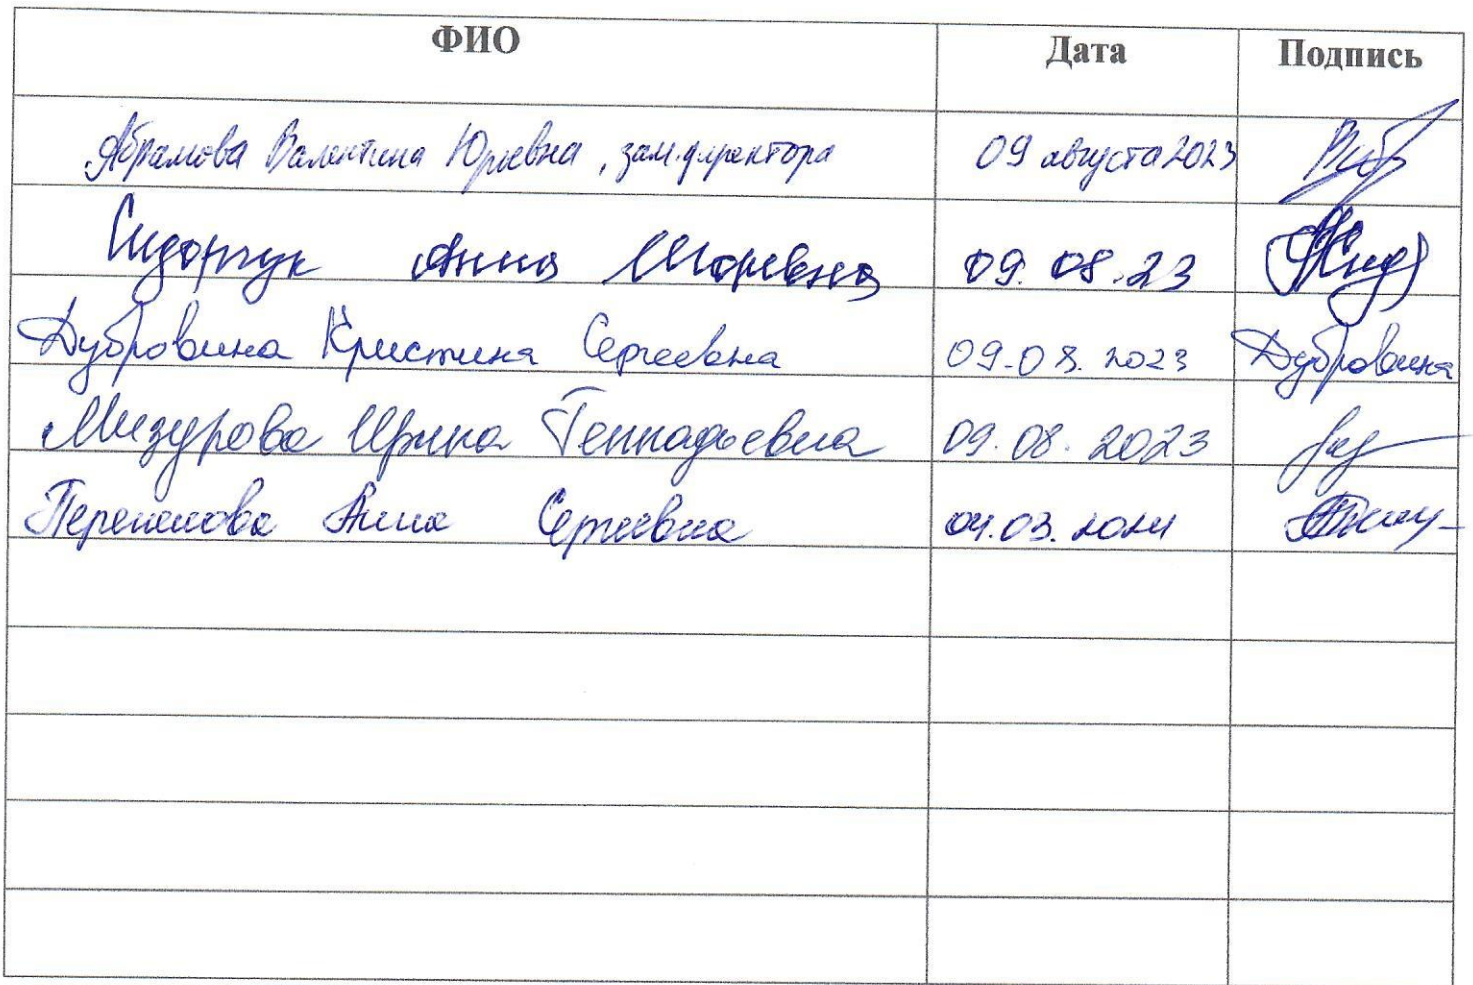 ФИО Дата Подпись
Абрамова Валентина Юрьевна, зам.директора 09 августа 2023
Сидорчук Анна Игоревна 09.08.23
Дубровина Кристина Сергеевна 09.08.2023 Дубровина
Мизурова Ирина Геннадьевна 09.08.2023
Перепелова Анна Сергеевна 04.03.2024